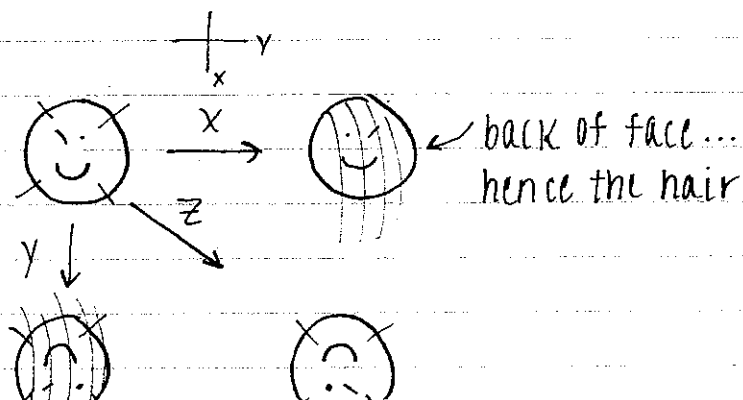 Y
x
X
back of face...
hence the hair
Z
Y